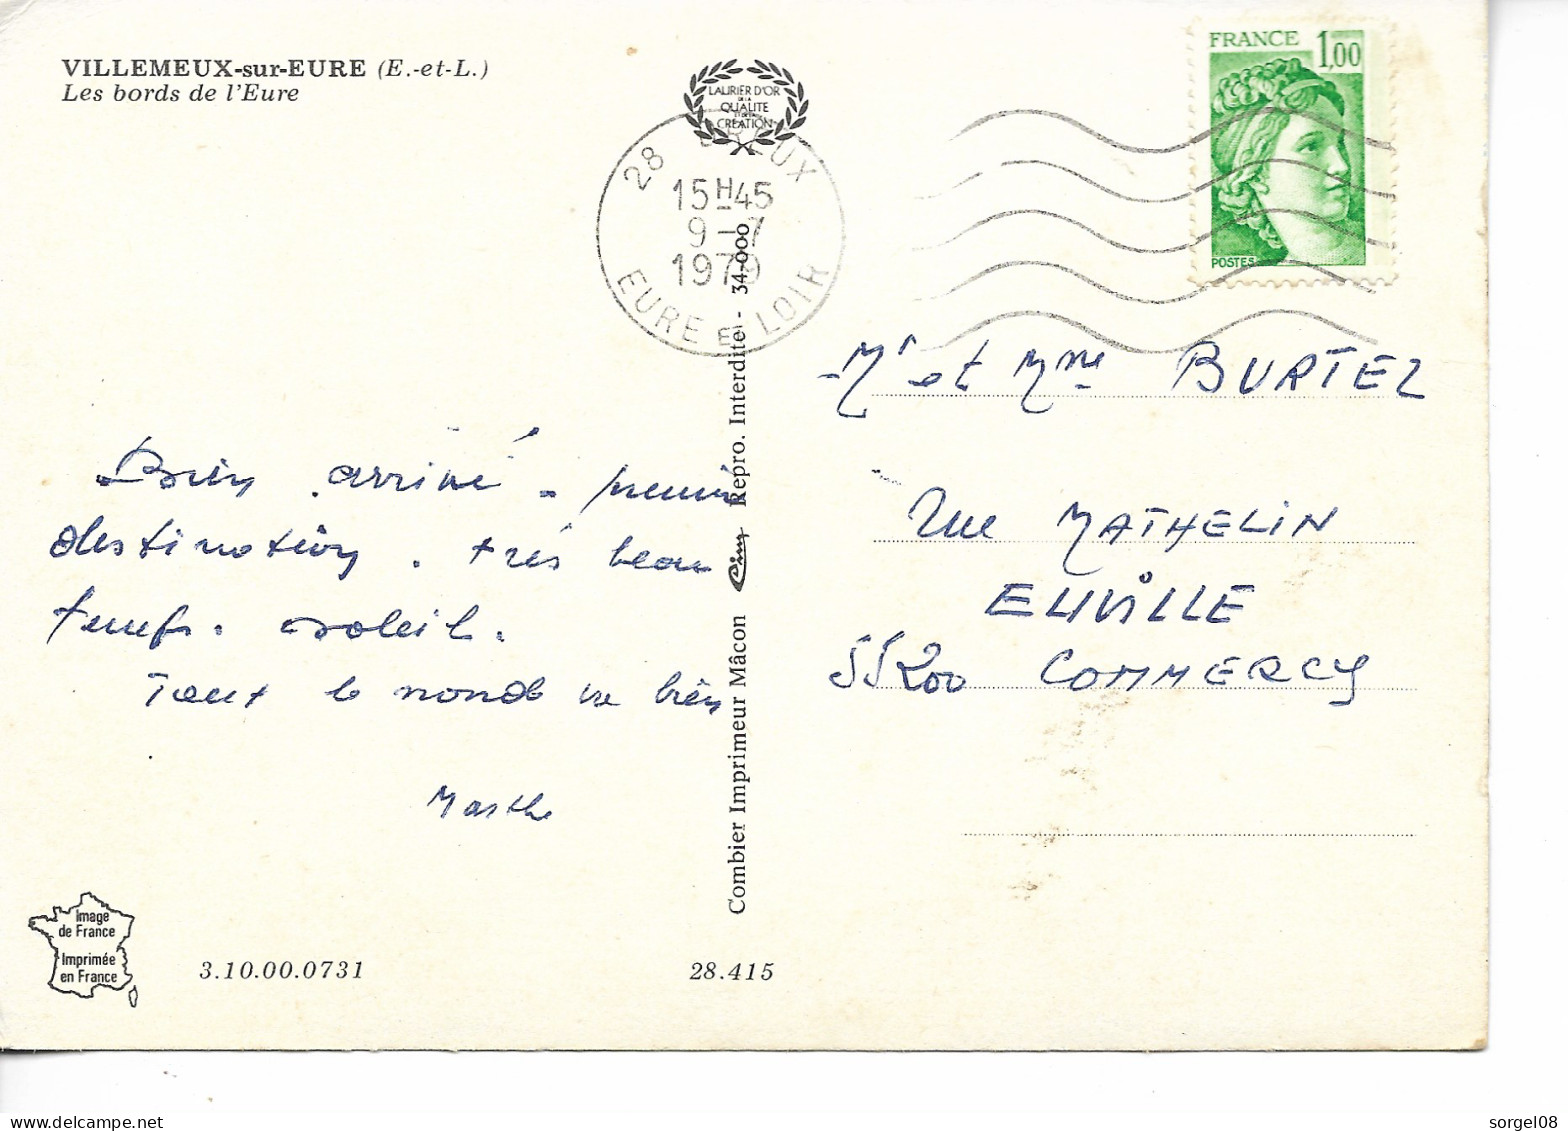 VILLEMEUX-sur-EURE (E.-et-L.)
Les bords de l'Eure
LAURIER D'OR
DE LA
QUALITE
ET DE LA
CREATION
28 DREUX
15H45
9-7
1979
EURE ET LOIR
FRANCE 1,00
POSTES
Mr et Mme BURTEL
Rue MATHELIN
EUVILLE
55200 COMMERCY
Bien arrivé. première
destination. très beau
temps. soleil.
Tout le monde va bien
Marthe
Combier Imprimeur Mâcon Cim Repro. Interdite - 34-000
Image
de France
Imprimée
en France
3.10.00.0731
28.415
delcampe.net
sorgel08